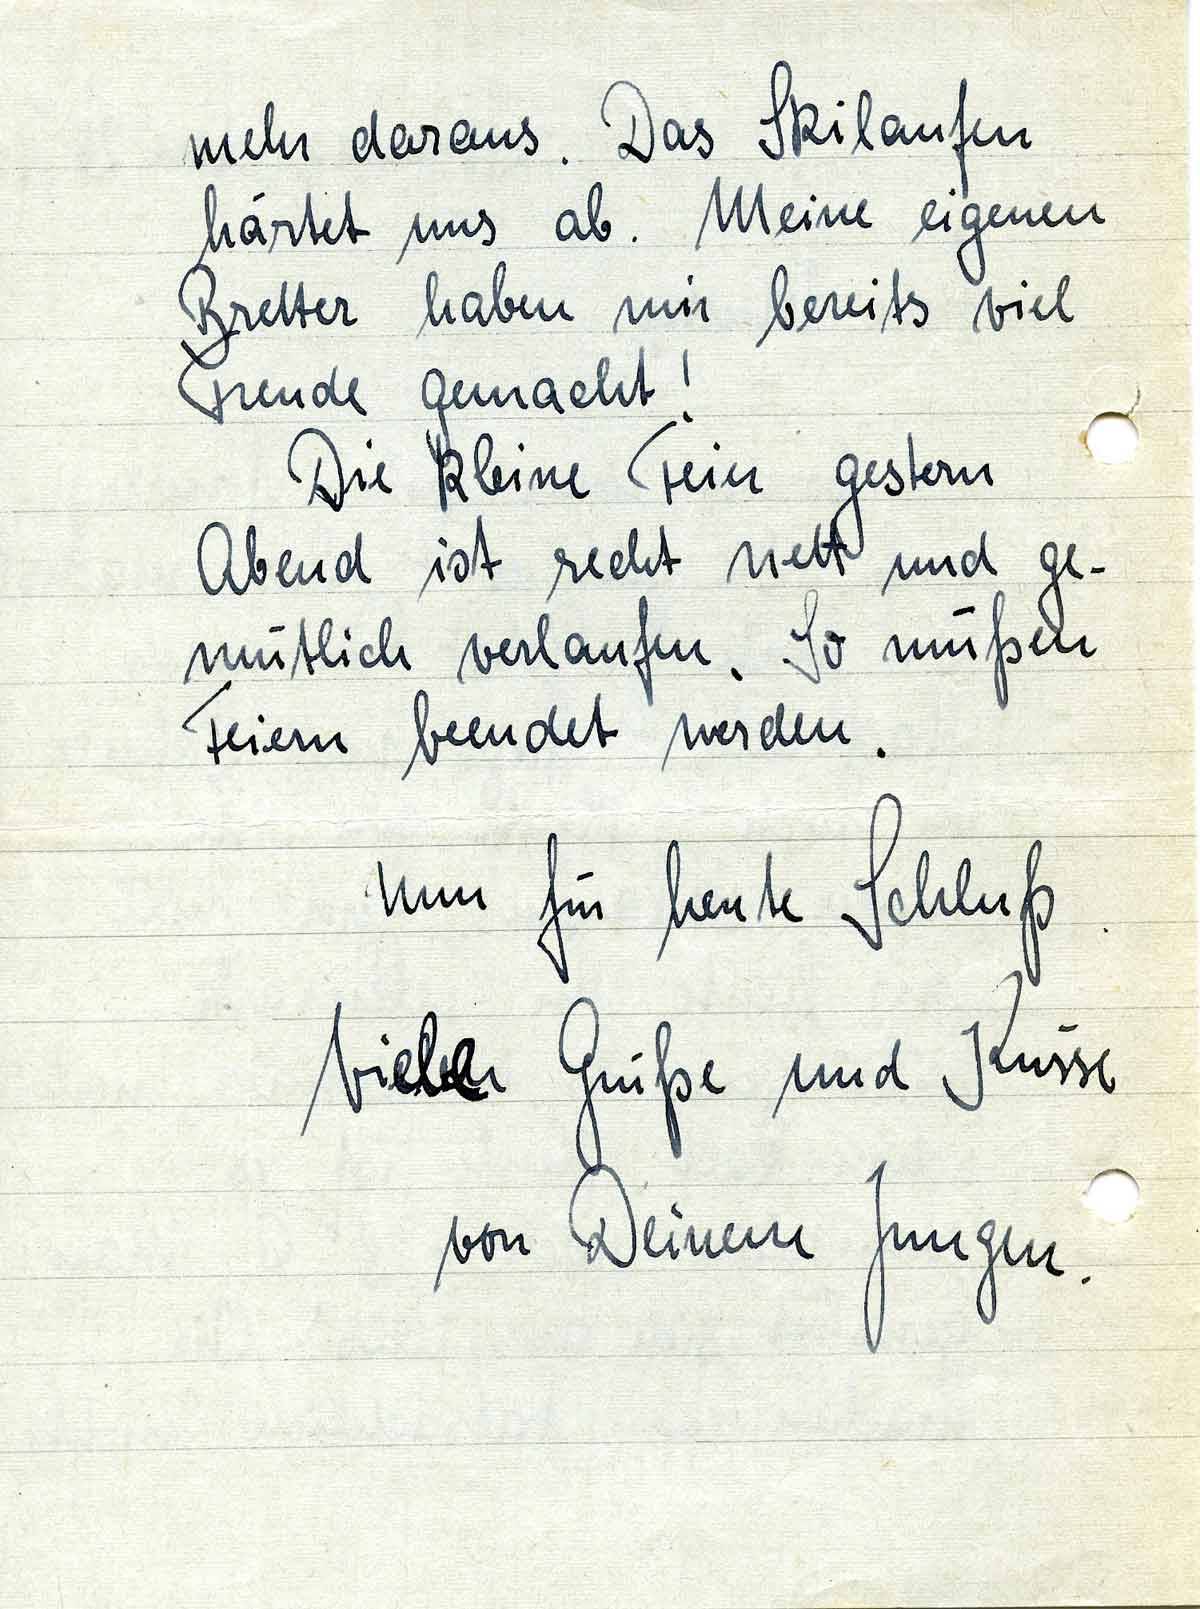 mehr daraus. Das Skilaufen
härtet uns ab. Meine eigenen
Bretter haben mir bereits viel
Freude gemacht!
Die kleine Feier gestern
Abend ist recht nett und ge-
mütlich verlaufen. So müßen
Feiern beendet werden.
Nun für heute Schluß.
Viele Grüße und Küsse
von Deinem Jungen.